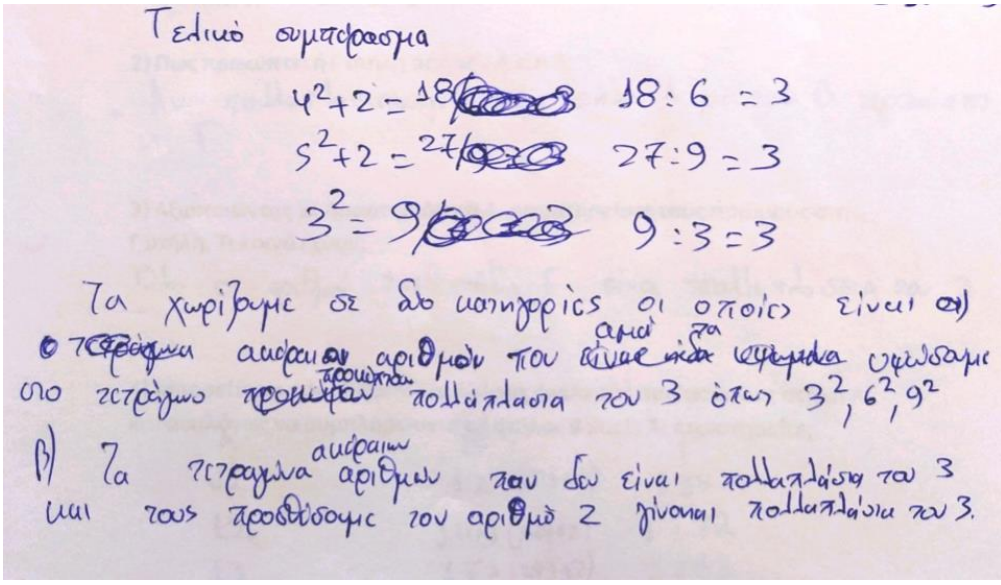 Τελικό συμπέρασμα
4²+2 = 18 18 : 6 = 3
5²+2 = 27 27 : 9 = 3
3² = 9 9 : 3 = 3
Τα χωρίζουμε σε δύο κατηγορίες οι οποίες είναι α)
ακέραιοι αριθμοί που άμα τα υψώσαμε
στο τετράγωνο προκύπτουν πολλάπλασια του 3 όπως 3², 6², 9²
β) Τα τετραγώνα ακέραιων αριθμων που δεν είναι πολλαπλάσια του 3
και τους προσθέσαμε τον αριθμό 2 γίνονται πολλαπλάσια του 3.